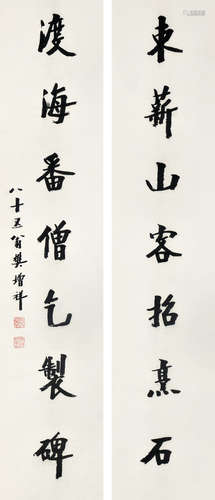 東薪山客招熹石
渡海番僧乞製碑
八十五翁樊增祥